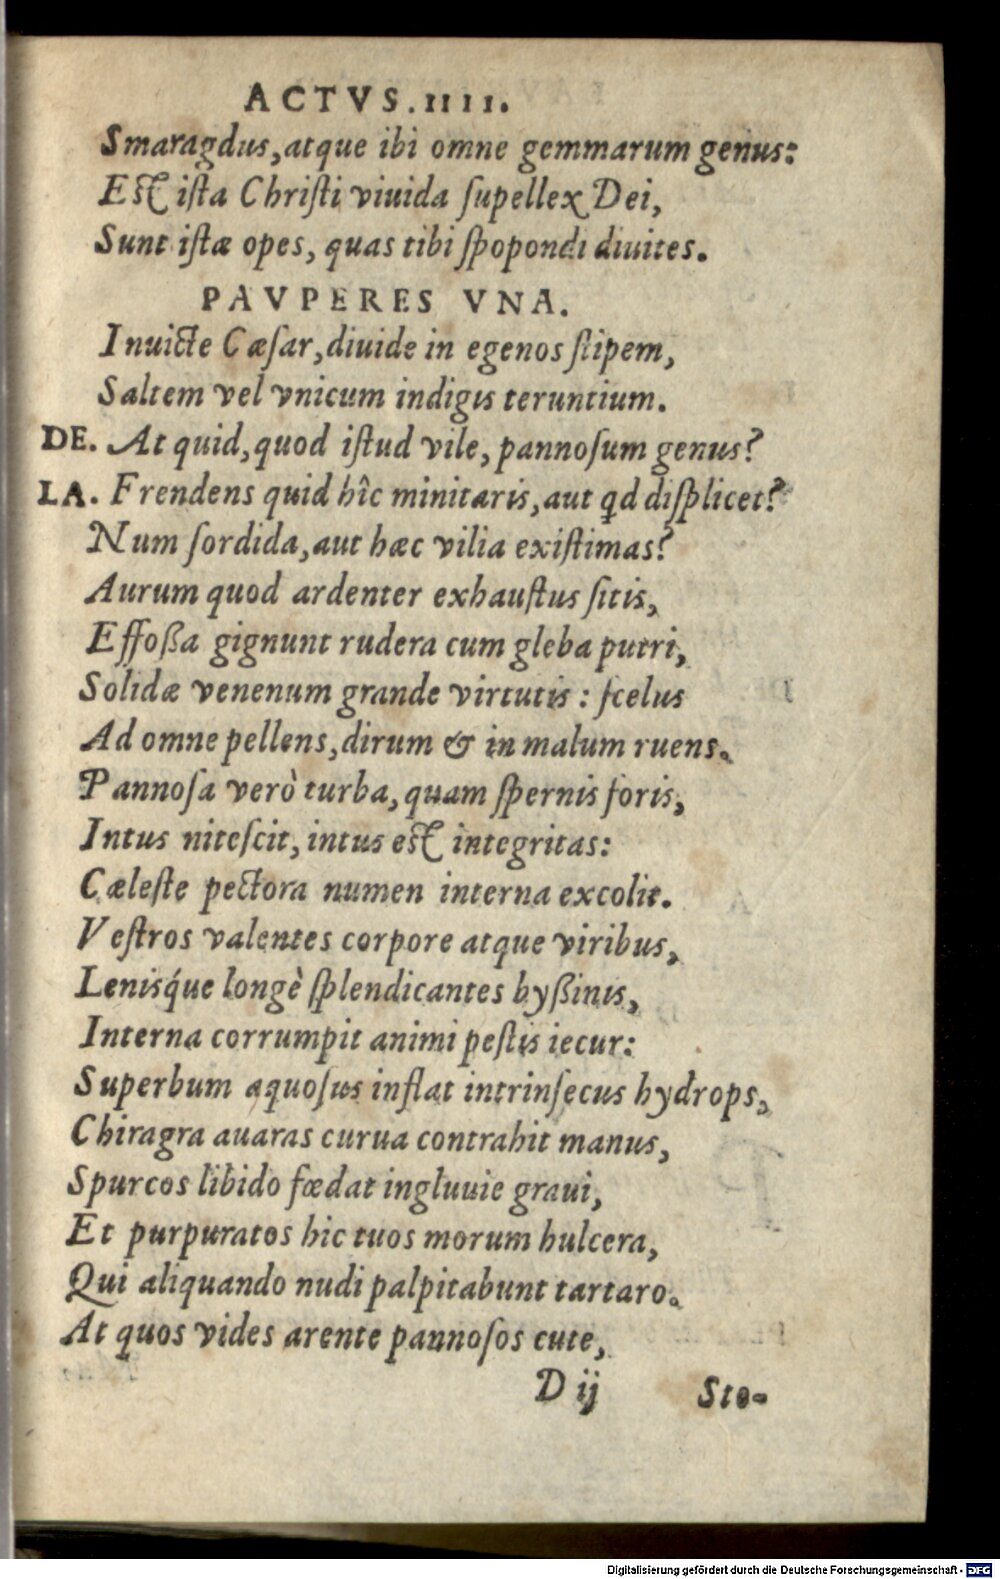 ACTVS.IIII.
Smaragdus, atque ibi omne gemmarum genus:
Est ista Christi viuida ſupellex Dei,
Sunt iſtæ opes, quas tibi ſpopondi diuites.
PAVPERES VNA.
Inuicte Cæſar, diuide in egenos ſtipem,
Saltem vel vnicum indigis teruntium.
DE. At quid, quod iſtud vile, pannoſum genus?
LA. Frendens quid hîc minitaris, aut qd diſplicet?
Num ſordida, aut hæc vilia exiſtimas?
Aurum quod ardenter exhauſtus ſitis,
Effoßa gignunt rudera cum gleba putri,
Solidæ venenum grande virtutis: ſcelus
Ad omne pellens, dirum & in malum ruens.
Pannoſa verò turba, quam ſpernis foris,
Intus niteſcit, intus est integritas:
Cæleſte pectora numen interna excolit.
Veſtros valentes corpore atque viribus,
Lenisq́ue longè ſplendicantes byßinis,
Interna corrumpit animi peſtis iecur:
Superbum aquoſus inflat intrinſecus hydrops,
Chiragra auaras curua contrahit manus,
Spurcos libido fœdat ingluuie graui,
Et purpuratos hic tuos morum hulcera,
Qui aliquando nudi palpitabunt tartaro.
At quos vides arente pannoſos cute,
D ij Sto-
Digitalisierung gefördert durch die Deutsche Forschungsgemeinschaft - DFG